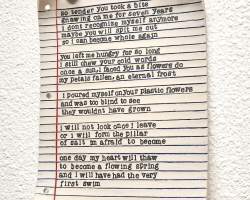 so tender you took a bite
gnawing on me for seven years
i dont recognize myself anymore
maybe you will spit me out
so i can become whole again
you left me hungry for so long
i still chew your cold words
once a sun, i faced you as flowers do
my petals fallen, an eternal frost
i poured myself on your plastic flowers
and was too blind to see
they wouldnt have grown
i will not look once i leave
or i will form the pillar
of salt im afraid to become
one day my heart will thaw
to become a flowing spring
and i will have had the very
first swim